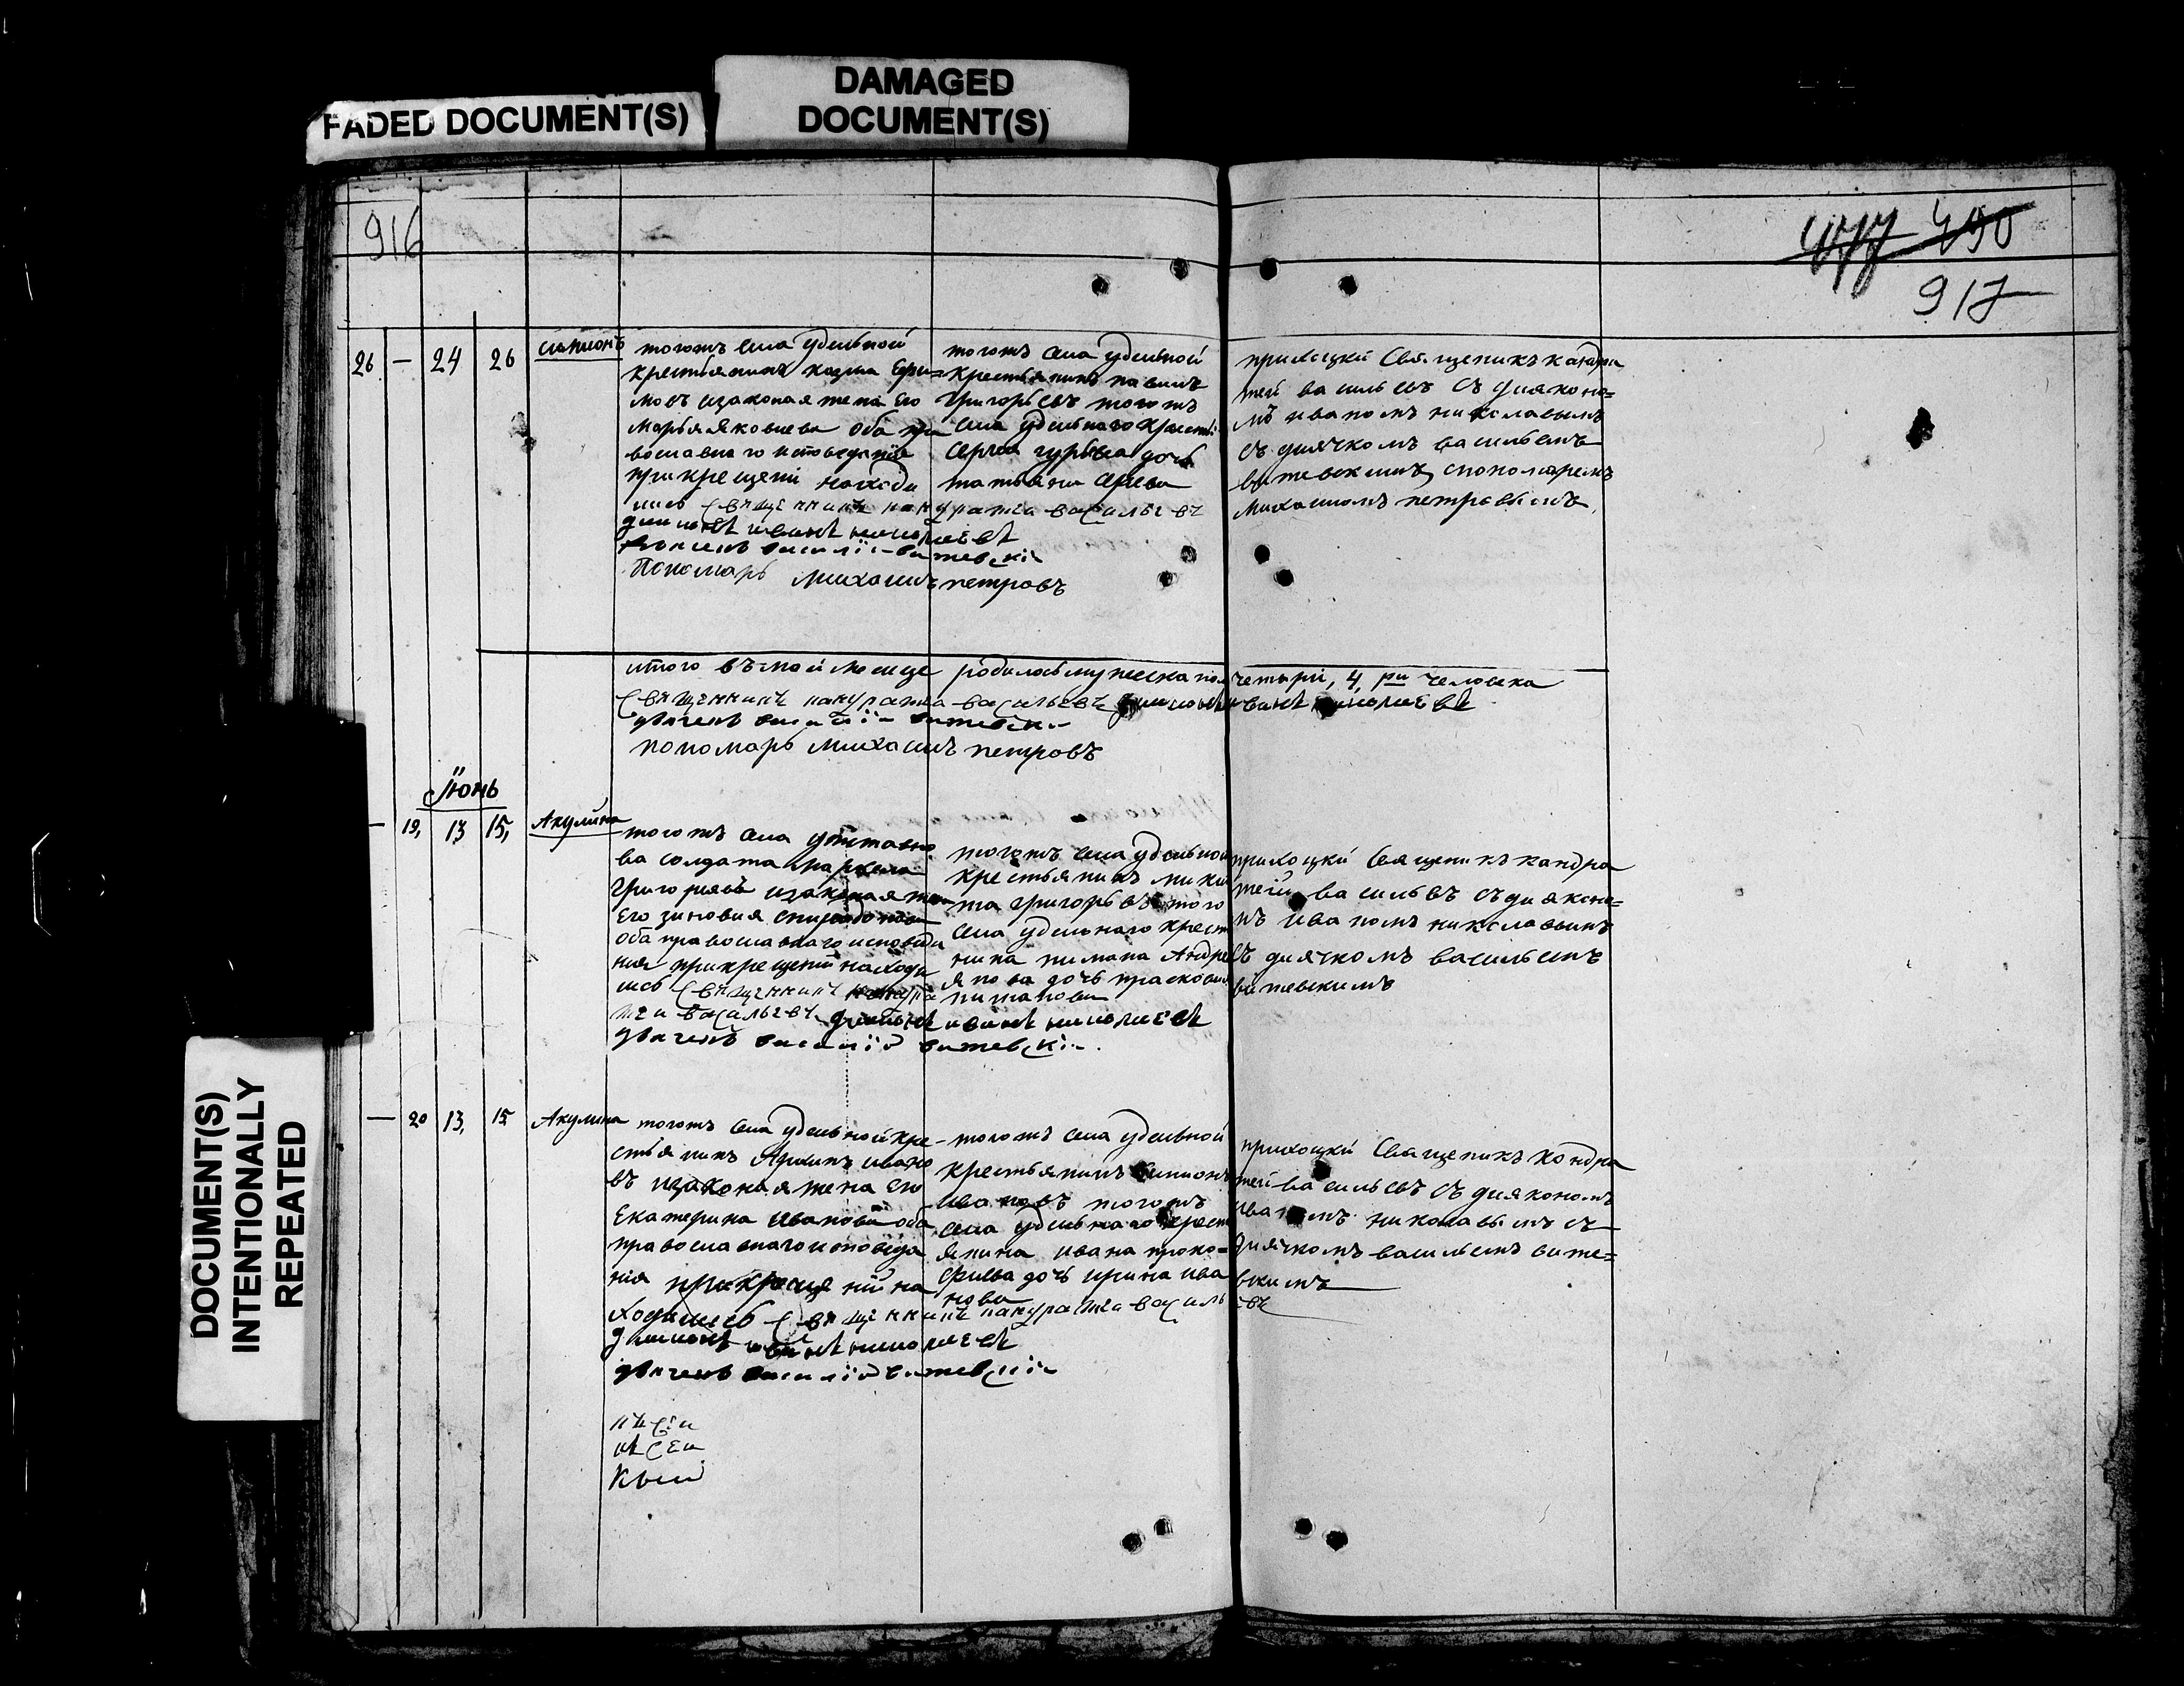 FADED DOCUMENT(S)
DAMAGED
DOCUMENT(S)
916
490
917
26 — 24 26
Симионъ
тогожъ села удельной
крестьянинъ козма Ефи=
мовъ изаконая жена Его
Марья Яковлева оба пра
вославнаго исповеданiя
прикрещенiи находи
лись Священникъ кандратiй васильевъ
дiаконъ иванъ николаевъ
дьячекъ василiй витевскiй
Пономарь михаилъ петровъ
тогожъ села удельной
крестьянинъ павилъ
Григорьевъ тогожъ
села удельнаго крестья
Сергея гурьева дочь
татьяна
приходцкий Священикъ кандра
тей васильевъ съ дияконо=
мъ иваномъ николавымъ
съ диячкомъ васильемъ
витевскимъ спономаремъ
михаиломъ петровымъ
итого въ май месице родилось мужеска пола четыри, 4ри человека
Священникъ кандратiй васильевъ дiаконъ иванъ николаевъ
дьячекъ василiй витевскiй
пономарь михаилъ петровъ
Iюнь
— 19, 13 15,
Акулина
тогожъ села
ва солдата
Григориевъ изаконая жена
Его зиновия
оба православнаго исповеда
ния прикрещенiй находи
лись Священникъ кандра
тiй васильевъ дiаконъ иванъ николаевъ
дьячекъ василiй витевскiй
тогожъ села удельной
крестьянинъ мики
та григорьевъ того
села удельнаго крестья
нина пимана Андре
янова дочь прасковия
пиманова
приходцкий Священикъ кандра
тей васильевъ съ диякono=
мъ иваномъ николавымъ
съ диячкомъ васильемъ
витевскимъ
— 20 13, 15
Акулина
тогожъ села удельной кре-
стьянинъ Архипъ ивано
въ изаконая жена Его
Екатерина иванова оба
православнаго исповеда
ния прикрещенiй на
ходились Священникъ кандратiй васильевъ
дiаконъ иванъ николаевъ
дьячекъ василiй витевскiй
тогожъ села удельной
крестьянинъ Симионъ
ивановъ тогожъ
села удельнаго крест
янина ивана проко=
фьева дочь ирина ива
нова
приходцкий Священикъ кондра
тей васильевъ съ диякономъ
иваномъ николавымъ съ
диячкомъ васильемъ вите=
вскимъ
DOCUMENT(S)
INTENTIONALLY
REPEATED